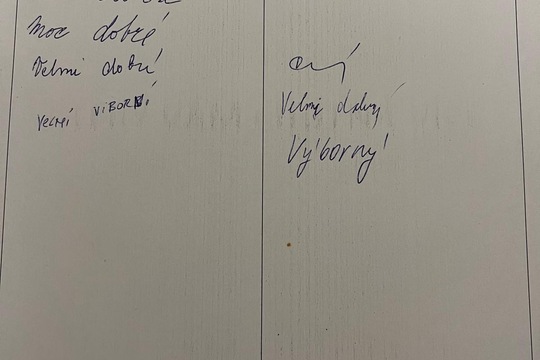 Moc dobré
Velmi dobrí
VIBORNÍ
Velmi dobrý
Výborný